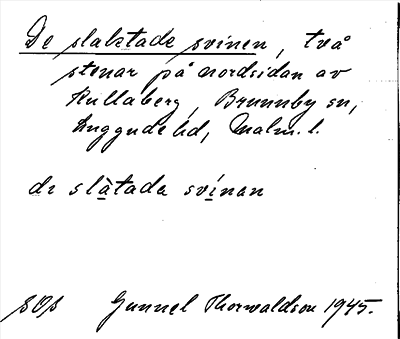 De slaktade svinen, två
stenar på nordsidan av
Kullaberg, Brunnby sn,
Luggude hd, Malm. l.
de slàtada svínan
SOS Gunnel Thorwaldson 1945.